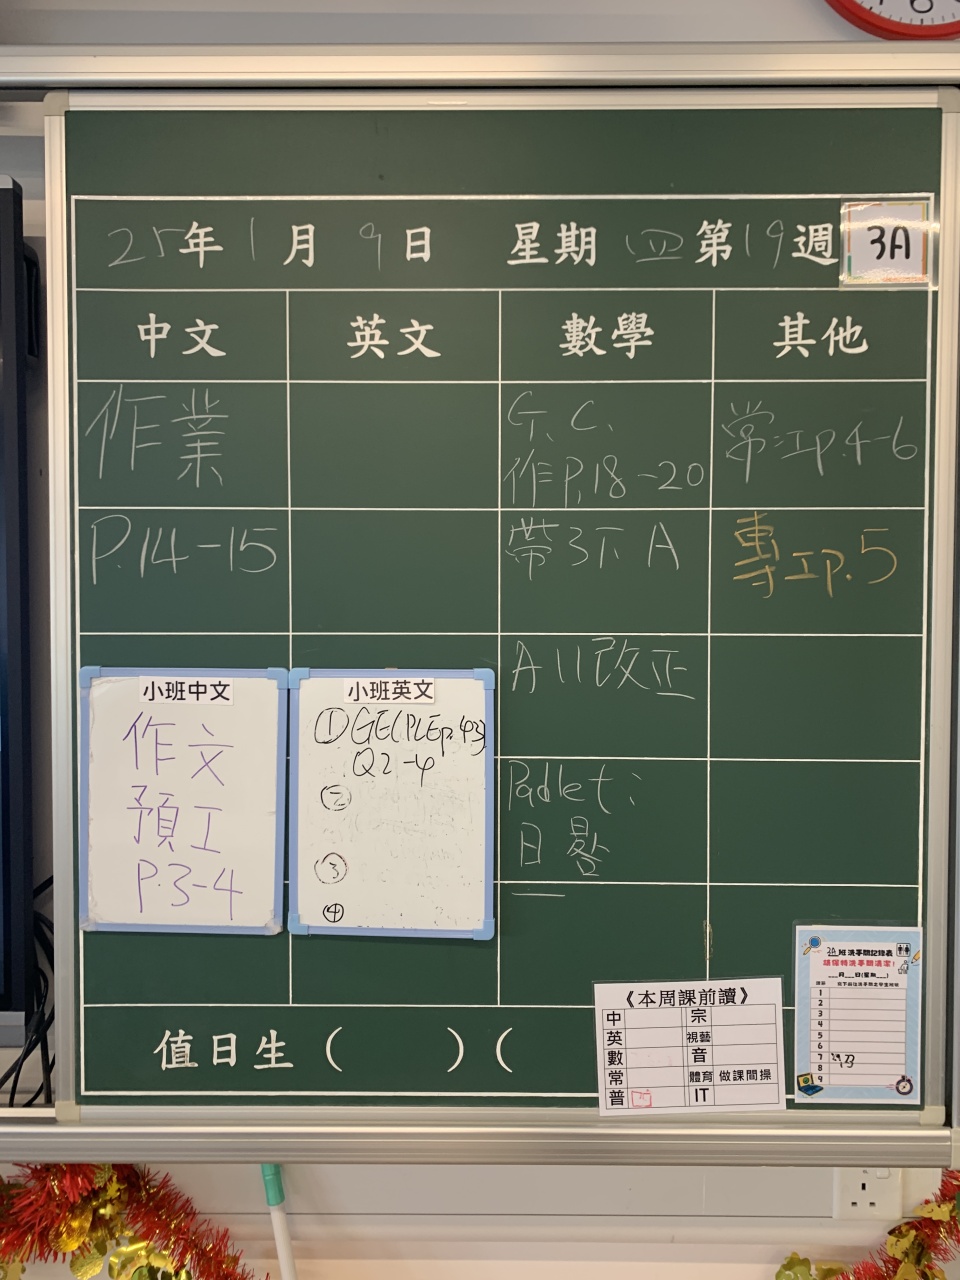 25年1月9日 星期四第19週 3A
中文 英文 數學 其他
作業
P.14-15
G.C.
作P.18-20
帶3下A
A11改正
Padlet:
常工P.4-6
專工P.5
小班中文
作文
預工
P.3-4
小班英文
①GE(PLEp.43)
Q2-4
②
③
④
值日生( )(
《本周課前讀》
中 宗
英 視藝
數 音
常 體育 做課間操
普 IT
3A班洗手間記錄表
請保持洗手間清潔!
___月___日(星期___)
1
2
3
4
5
6
7
8
9